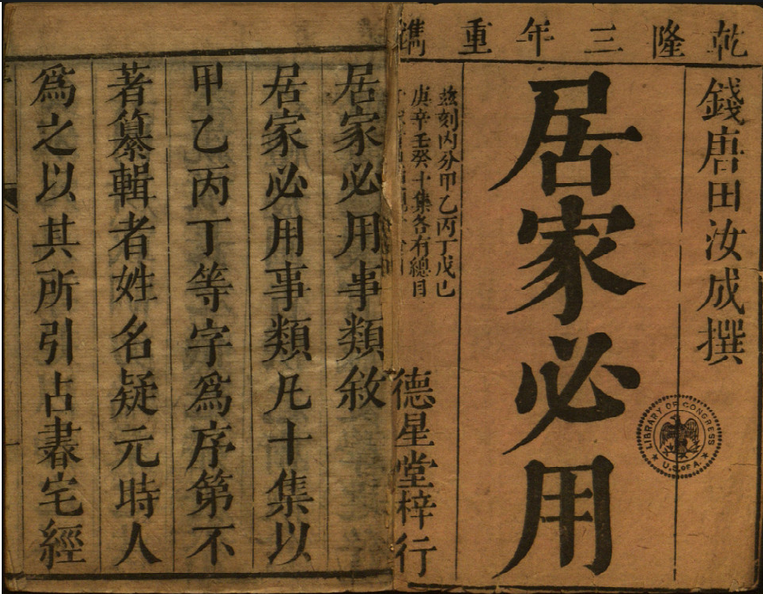 乾隆三年重鐫
錢唐田汝成撰
居家必用
茲刻內分甲乙丙丁戊己
庚辛壬癸十集各有總目
德星堂梓行
LIBRARY OF CONGRESS
U.S. of A.
居家必用事類敘
居家必用事類凡十集以
甲乙丙丁等字爲序第不
著纂輯者姓名疑元時人
爲之以其所引占書宅經